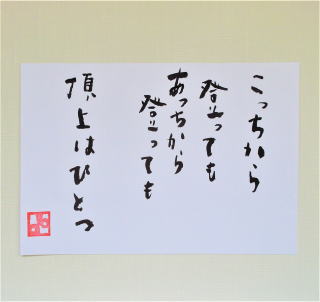 こっちから
登っても
あっちから
登っても
頂上はひとつ